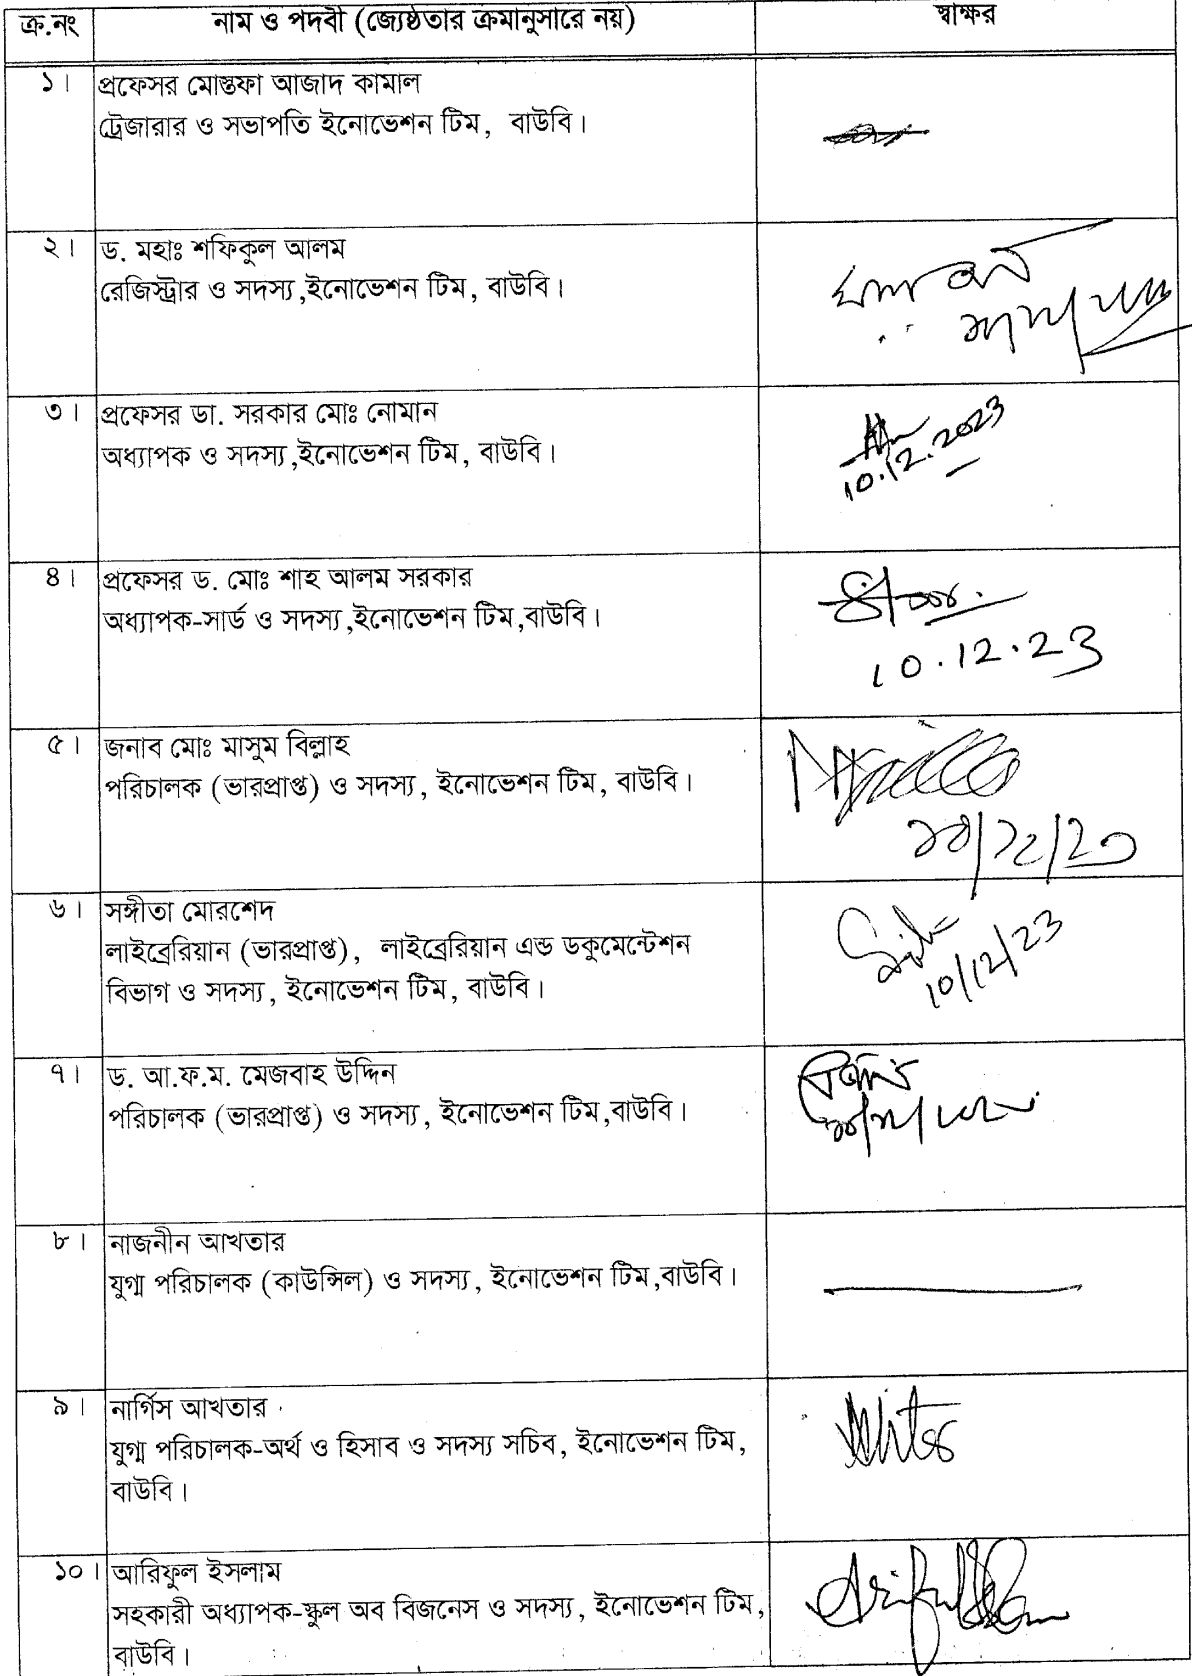 ক্র.নং নাম ও পদবী (জ্যেষ্ঠতার ক্রমানুসারে নয়) স্বাক্ষর
১। প্রফেসর মোস্তফা আজাদ কামাল
ট্রেজারার ও সভাপতি ইনোভেশন টিম, বাউবি।
২। ড. মহাঃ শফিকুল আলম
রেজিস্ট্রার ও সদস্য,ইনোভেশন টিম, বাউবি।
৩। প্রফেসর ডা. সরকার মোঃ নোমান
অধ্যাপক ও সদস্য,ইনোভেশন টিম, বাউবি।
10.12.2023
৪। প্রফেসর ড. মোঃ শাহ আলম সরকার
অধ্যাপক-সার্ড ও সদস্য,ইনোভেশন টিম,বাউবি।
10.12.23
৫। জনাব মোঃ মাসুম বিল্লাহ
পরিচালক (ভারপ্রাপ্ত) ও সদস্য, ইনোভেশন টিম, বাউবি।
১০/১২/২৩
৬। সঙ্গীতা মোরশেদ
লাইব্রেরিয়ান (ভারপ্রাপ্ত), লাইব্রেরিয়ান এন্ড ডকুমেন্টেশন
বিভাগ ও সদস্য, ইনোভেশন টিম, বাউবি।
10/12/23
৭। ড. আ.ফ.ম. মেজবাহ উদ্দিন
পরিচালক (ভারপ্রাপ্ত) ও সদস্য, ইনোভেশন টিম,বাউবি।
৮। নাজনীন আখতার
যুগ্ম পরিচালক (কাউন্সিল) ও সদস্য, ইনোভেশন টিম,বাউবি।
৯। নার্গিস আখতার
যুগ্ম পরিচালক-অর্থ ও হিসাব ও সদস্য সচিব, ইনোভেশন টিম,
বাউবি।
১০। আরিফুল ইসলাম
সহকারী অধ্যাপক-স্কুল অব বিজনেস ও সদস্য, ইনোভেশন টিম,
বাউবি।